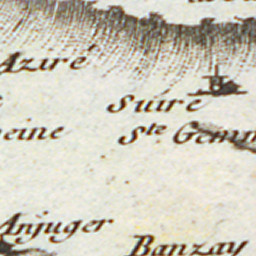 Aziré
Suire
eine
Ste. Gemm
Anjuger
Banzay